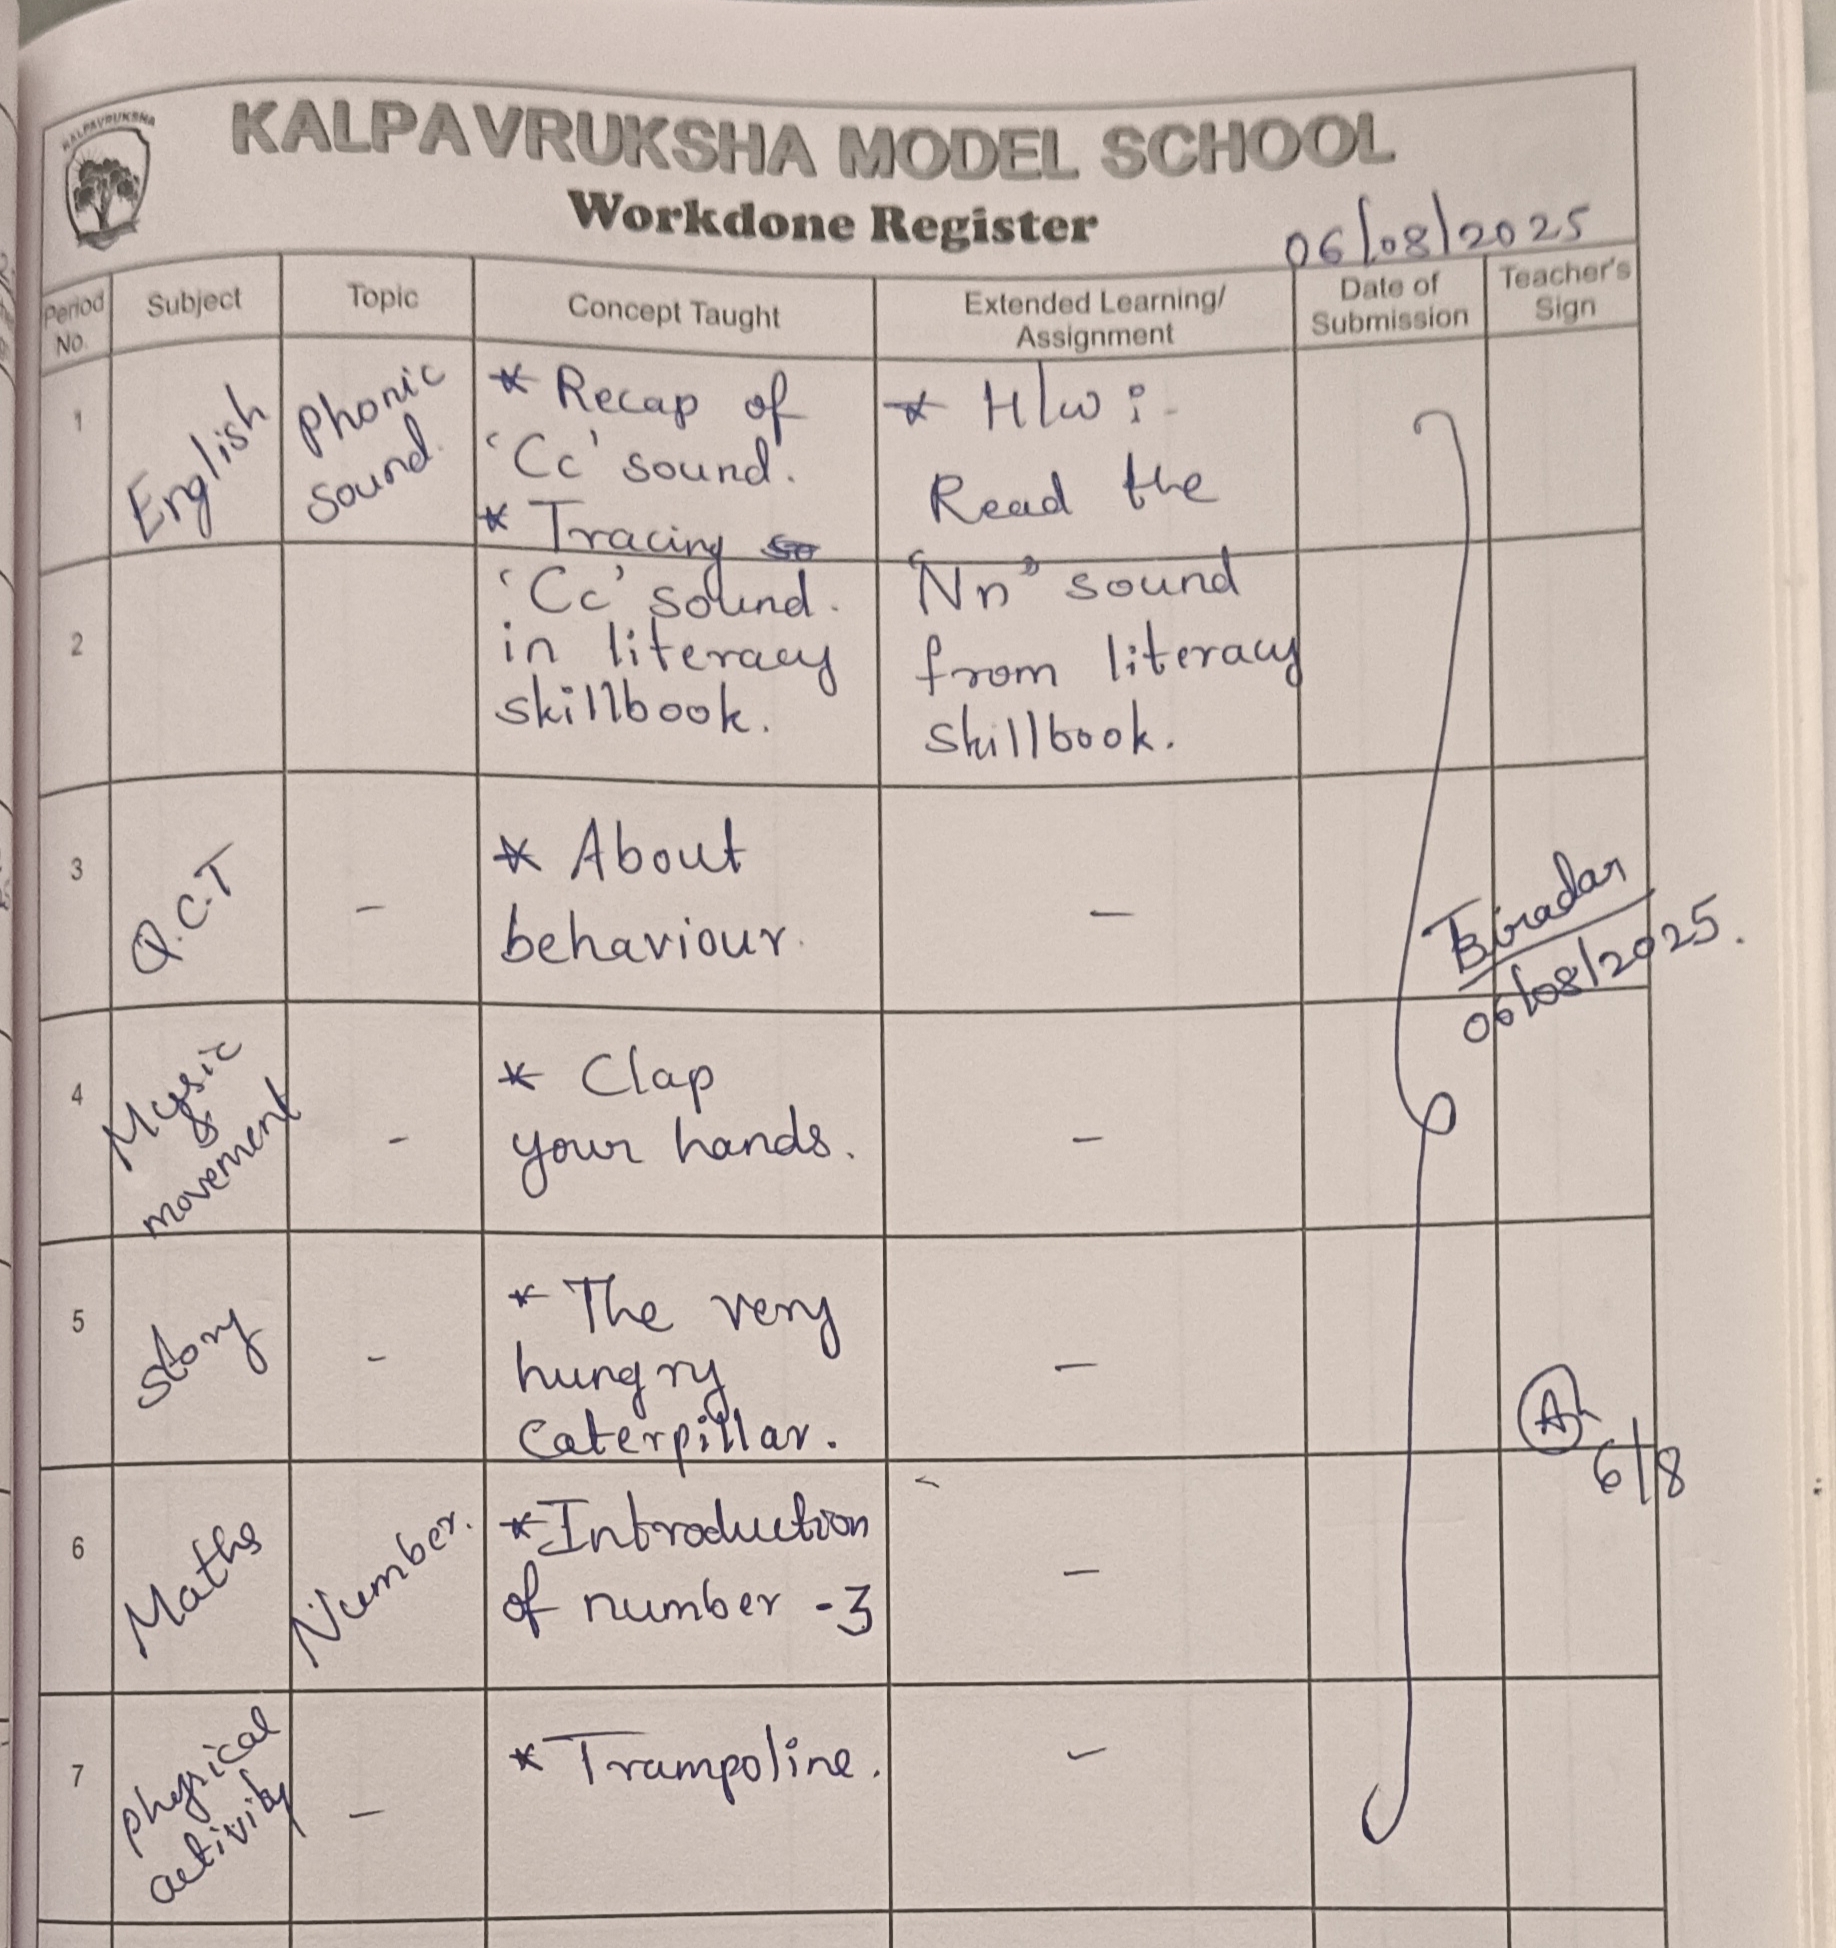 KALPAVRUKSHA
KALPAVRUKSHA MODEL SCHOOL
Workdone Register
06/08/2025
Period No.
Subject
Topic
Concept Taught
Extended Learning/
Assignment
Date of
Submission
Teacher's
Sign
1
English
Phonic
sound.
* Recap of
'Cc' sound.
* Tracing
'Cc' sound.
in literacy
skillbook.
* H/w :-
Read the
'Nn' sound
from literacy
skillbook.
2
3
Q.C.T
-
* About
behaviour.
-
Biradar
06/08/2025.
4
Music
&
movement
-
* Clap
your hands.
-
5
Story
-
* The very
hungry
Caterpillar.
-
6/8
6
Maths
Number.
* Introduction
of number - 3
-
7
physical
activity
-
* Trampoline.
-